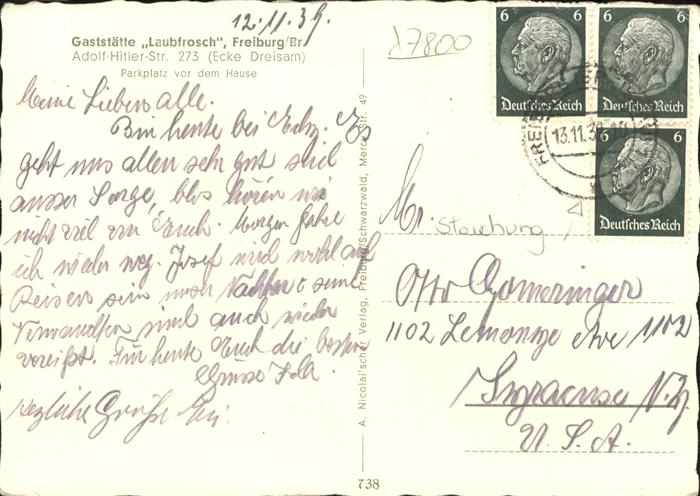 12.11.39.
Gaststätte „Laubfrosch", Freiburg/Br.
Adolf-Hitler-Str. 273 (Ecke Dreisam)
Parkplatz vor dem Hause
Meine Lieben alle.
Bin heute bei Edw. Es
geht uns allen sehr gut sind
ausser Sorge, blos hören wir
nicht viel von Euch. Morgen fahre
ich wieder weg. Josef wird wohl auch
sein unser & seine
Verwandten sind auch wieder
vereist. Für heute Euch die besten
Grüsse
herzliche Grüße
A. Nicolai'scher Verlag, Freiburg/Schwarzwald, Merc str. 49
738
17800
6
6
6
Deutsches Reich
Deutsches Reich
Deutsches Reich
13.11.39.10
Mr.
Stauchung
Otto Gomeringer
1102 Ave 1102
Syracuse N.Y.
U.S.A.